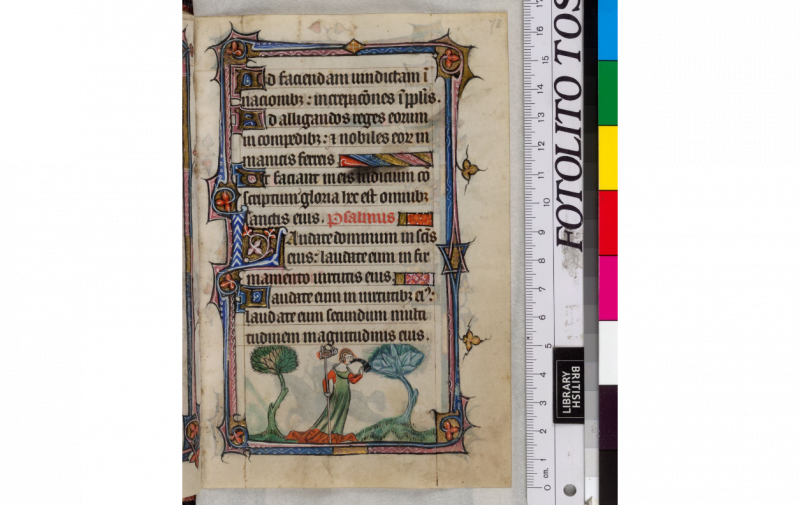 78
Ad faciendam uindictam ī
nacionibꝫ : increpac̄ones ī ppl̄is.
Ad alligandos reges eorum
in compedibꝫ : ⁊ nobiles eoꝝ in
manicis ferreis
Ut faciant in eis iudicium co
scriptum gloria hec est omnibꝫ
sanctis eius. Psalmus
Laudate dominum in sc̄is
eius : laudate eum in fir
mamento uirtutis eius.
Laudate eum in uirtutibꝫ ei⁹:
laudate eum secundum multi
tudinem magnitudinis eius.
FOTOLITO TOS
BRITISH
LIBRARY
0 cm.
1
2
3
4
5
6
7
8
9
10
11
12
13
14
15
16
17